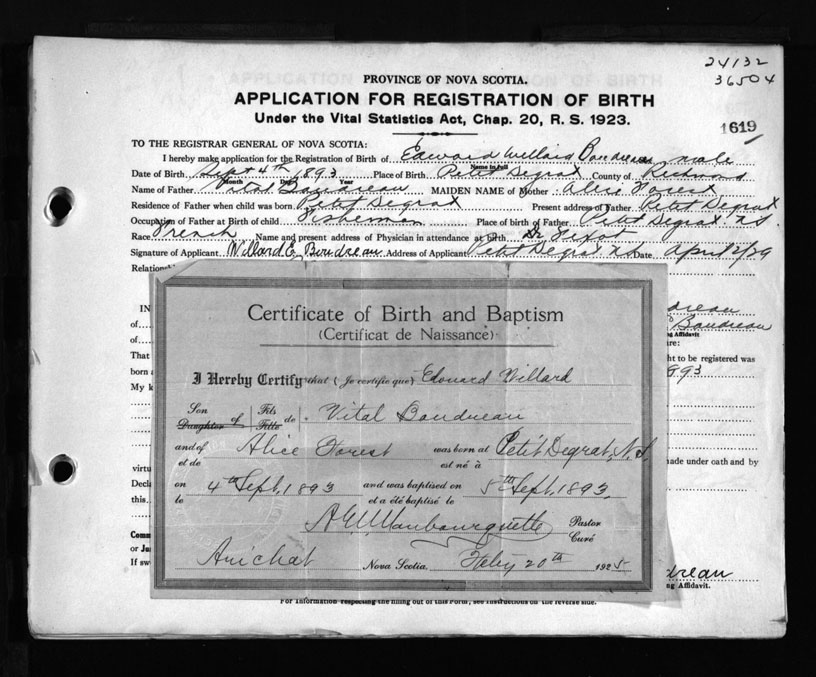 24132
36504
PROVINCE OF NOVA SCOTIA.
APPLICATION FOR REGISTRATION OF BIRTH
Under the Vital Statistics Act, Chap. 20, R. S. 1923.
1619
TO THE REGISTRAR GENERAL OF NOVA SCOTIA:
I hereby make application for the Registration of Birth of Edward Willard Boudreau male
Name in full
Date of Birth Sept 4th 1893 Place of Birth Petit Degrat County of Richmond
Month Day Year
Name of Father Vital Boudreau MAIDEN NAME of Mother Alice Forest
Residence of Father when child was born Petit Degrat Present address of Father Petit Degrat
Occupation of Father at Birth of child Fisherman Place of birth of Father Petit Degrat NS.
Race French Name and present address of Physician in attendance at Birth Dr
Signature of Applicant Willard E. Boudreau Address of Applicant Petit Degrat NS Date April 2/29
Relations
IN
of
of
That
born a
My k
dreau
Boudreau
ng Affidavit
re:
ht to be registered was
893
Certificate of Birth and Baptism
(Certificat de Naissance)
I Hereby Certify that (Je certifie que) Edouard Willard
Son Daughter of Fils Fille de Vital Boudreau
and of et de Alice Forest was born at est né à Petit Degrat, N.S,
on le 4th Sept, 1893 and was baptised on et a été baptisé le 5th Sept, 1893,
Pastor Curé
Arichat Nova Scotia. Feby 20th 1925
virtu
Decla
this
Comm
or Ju
If sw
ade under oath and by
dreau
ng Affidavit.
For Information respecting the filling out of this Form, see Instructions on the reverse side.